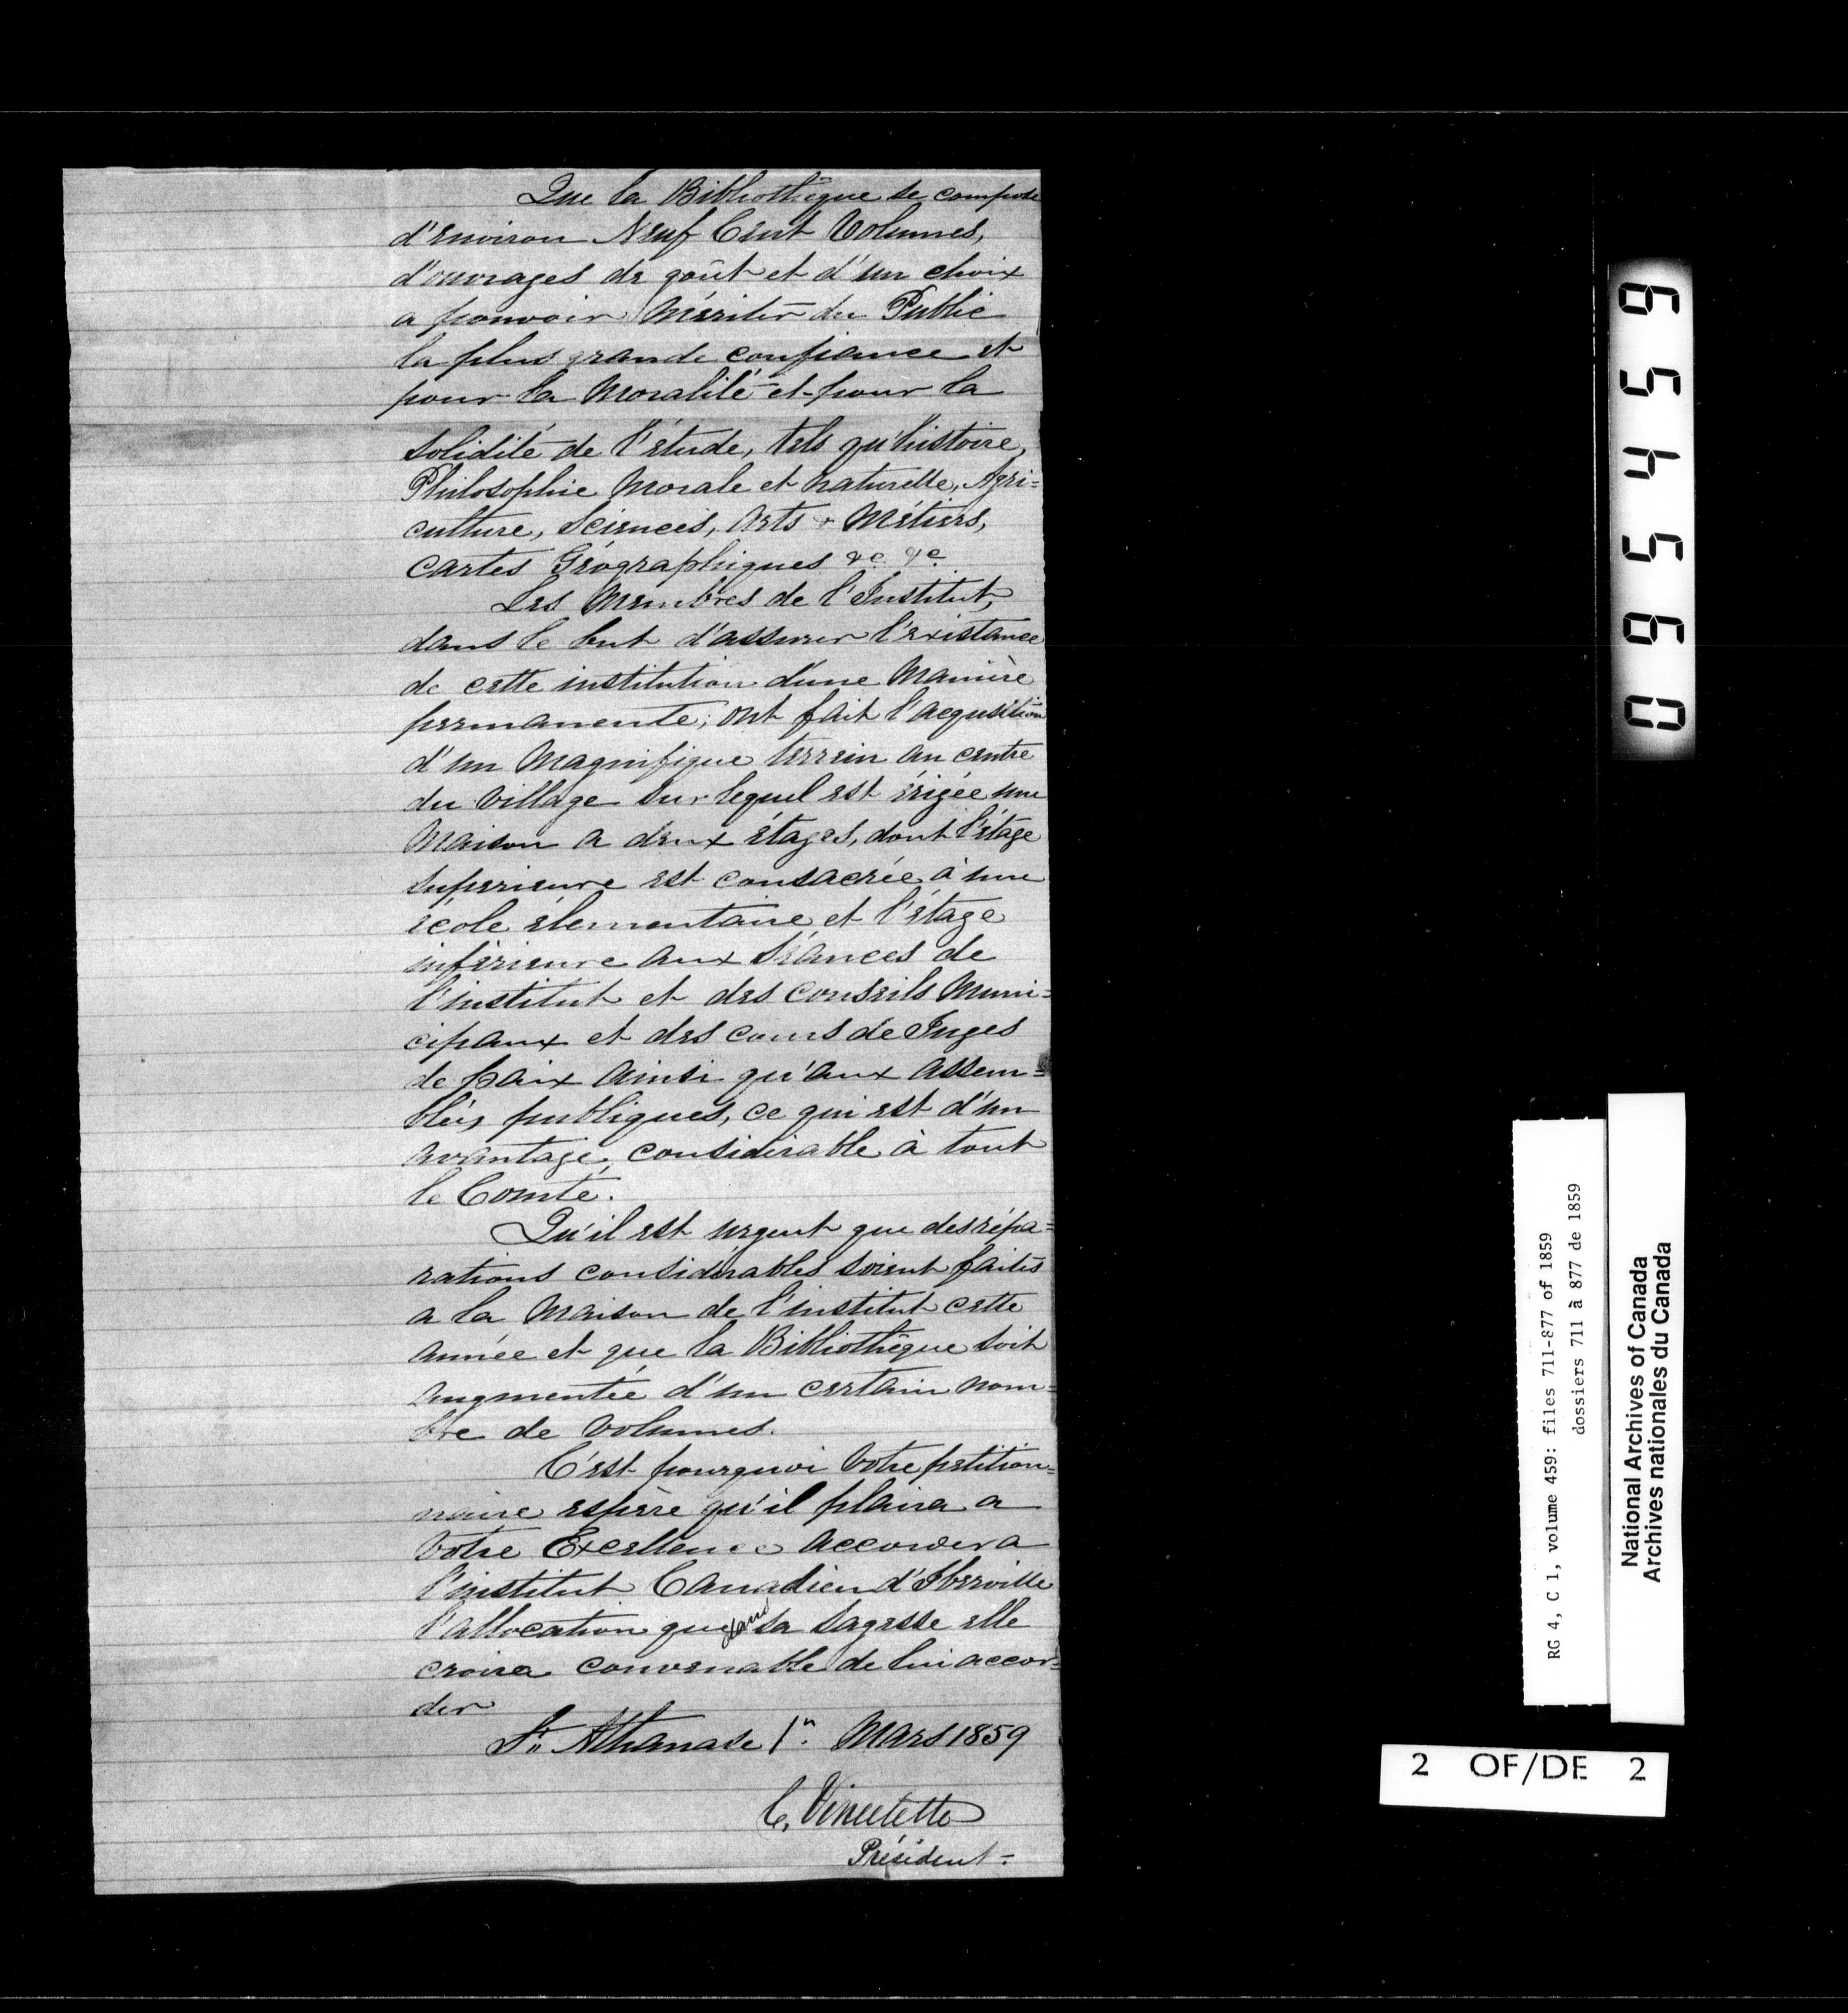 Que la Bibliothèque se compose
d'environ Neuf Cent Volumes,
d'ouvrages de goût et d'un choix
a pouvoir Mériter du Public
la plus grande confiance et
pour la Moralité et pour la
solidité de l'étude, tels qu'histoire,
Philosophie Morale et naturelle, Agri=
culture, Sciences, Arts & Métiers,
cartes Géographiques &c &c
Les Membres de l'Institut,
dans le but d'assurer l'existance
de cette institution d'une Manière
permanente; ont fait l'acqusition
d'un Magnifique terrein au centre
du Village sur lequel est érigée une
Maison a deux étages, dont l'étage
superieure est consacrée à une
école élementaire et l'étage
inférieure aux Séances de
l'institut et des conseils Muni=
cipaux et des cours de Juges
de paix ainsi qu'aux assem=
blées publiques, ce qui est d'un
avantage considérable à tout
le Comté.
Qu'il est urgent que des répa=
rations considérables soient faites
a la Maison de l'institut cette
année et que la Bibliothèque soit
augmentée d'un certain nom=
bre de volumes.
C'est pourquoi Votre petition=
naire espère qu'il plaira a
Votre Excellence accorder a
l'institut Canadien d'Iberville
l'allocation que dans sa sagesse elle
croira convenable de lui accor=
der
St. Athanase 1er. Mars 1859
Président=
095459
RG 4, C 1, volume 459: files 711-877 of 1859
dossiers 711 à 877 de 1859
National Archives of Canada
Archives nationales du Canada
2 OF/DE 2